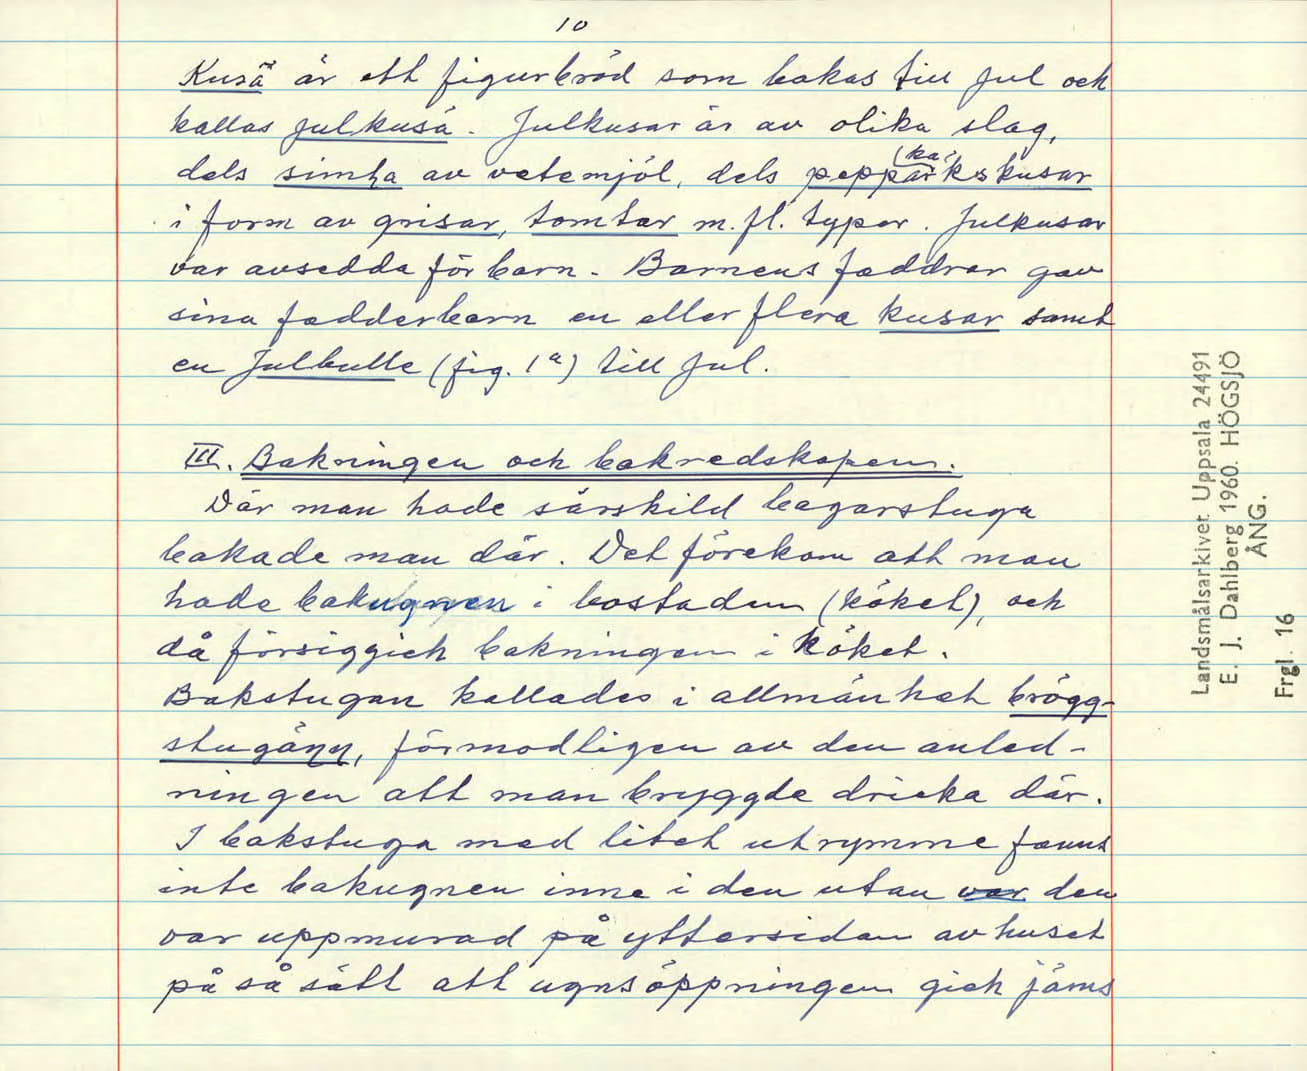 10
Kusä är ett figurbröd som bakas till jul och
kallas julkusä. Julkusar är av olika slag,
dels simḷa av vetemjöl, dels peppärkskusar
(ka)
i form av grisar, tomtar m.fl. typer. Julkusar
var avsedda för barn. Barnens faddrar gav
sina fadderbarn en eller flera kusar samt
en Julbulle (fig. 1a) till Jul.
III. Bakningen och bakredskapen.
Där man hade särskild bagarstuga
bakade man där. Det förekom att man
hade bakugnen i bostaden (köket), och
då försiggick bakningen i köket.
Bakstugan kallades i allmänhet brögg-
stugänn, förmodligen av den anled-
ningen att man bryggde dricka där.
I bakstuga med litet utrymme fanns
inte bakugnen inne i den utan var den
var uppmurad på yttersidan av huset
på så sätt att ugnsöppningen gick jäms
Landsmålsarkivet Uppsala 24491
E. J. Dahlberg 1960. HÖGSJÖ
ÅNG.
Frgl. 16